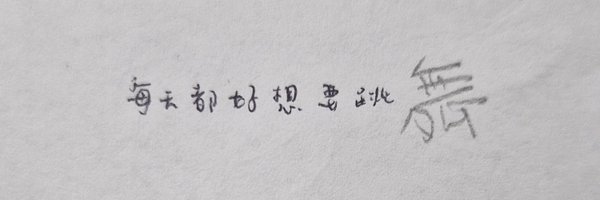 每天都好想要跳舞